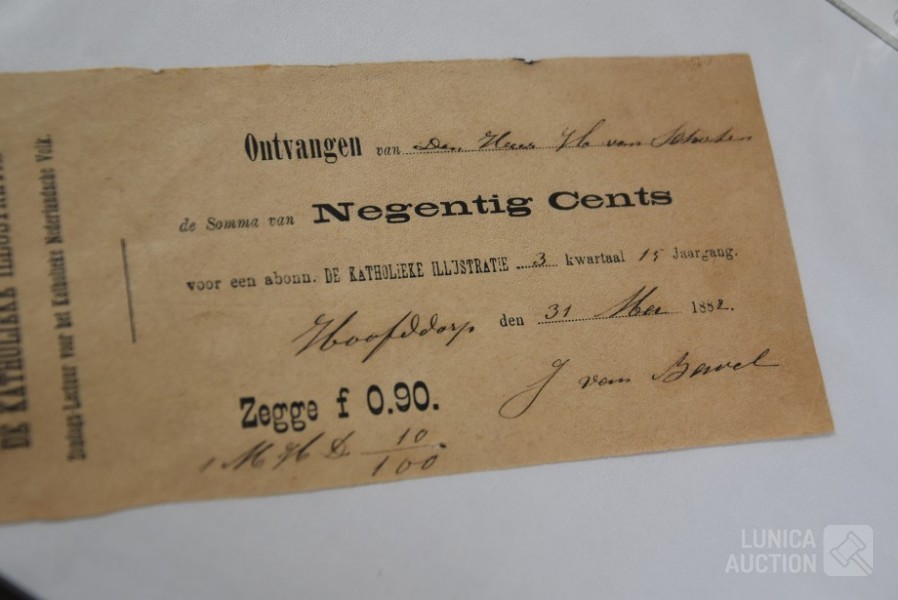 DE KATHOLIEKE ILLUSTRATIE
Zondags-Lectuur voor het Katholieke Nederlandsche Volk.
Ontvangen van Den Heer H van
de Somma van Negentig Cents
voor een abonn. DE KATHOLIEKE ILLUSTRATIE 3 kwartaal 15 Jaargang.
Hoofddorp den 31 Mei 1882.
J van Bavel
Zegge f 0.90.
1 M H D 10/100
LUNICA
AUCTION